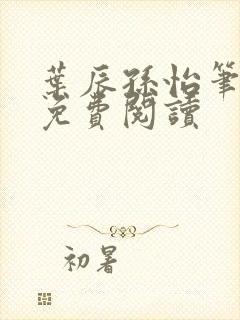 葉辰孫怡筆
免費閱讀
初暑